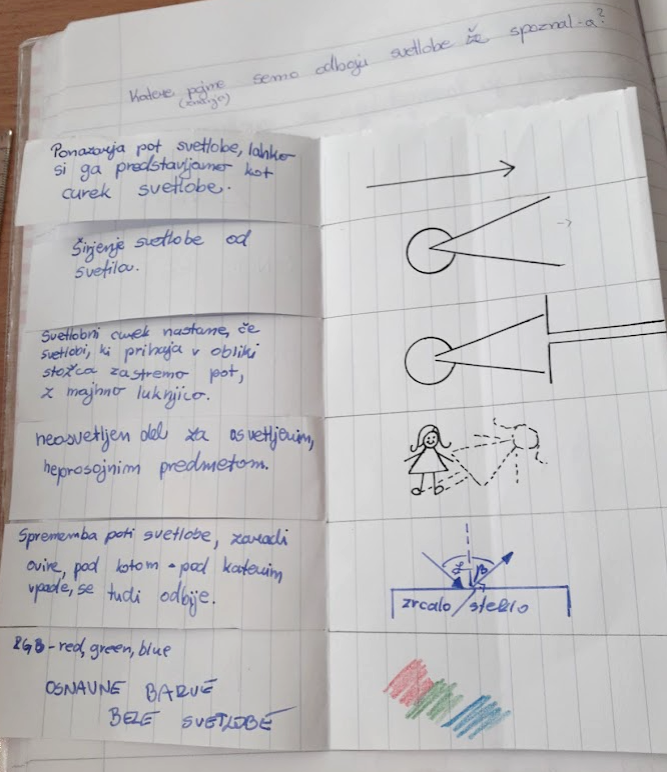 Katere pojme semo odboju svetlobe že spoznal-a?
Ponazarja pot svetlobe, lahko
si ga predstavljamo kot
curek svetlobe.
Širjenje svetlobe od
svetila.
Svetlobni curek nastane, če
svetlobi, ki prihaja v obliki
stožca zastremo pot,
z majhno luknjico.
neosvetljen del za osvetljenim,
neprosojnim predmetom.
Sprememba poti svetlobe, zaradi
ovire, pod kotom - pod katerim
vpade, se tudi odbije.
α β
zrcalo/steklo
RGB - red, green, blue
OSNOVNE BARVE
BELE SVETLOBE